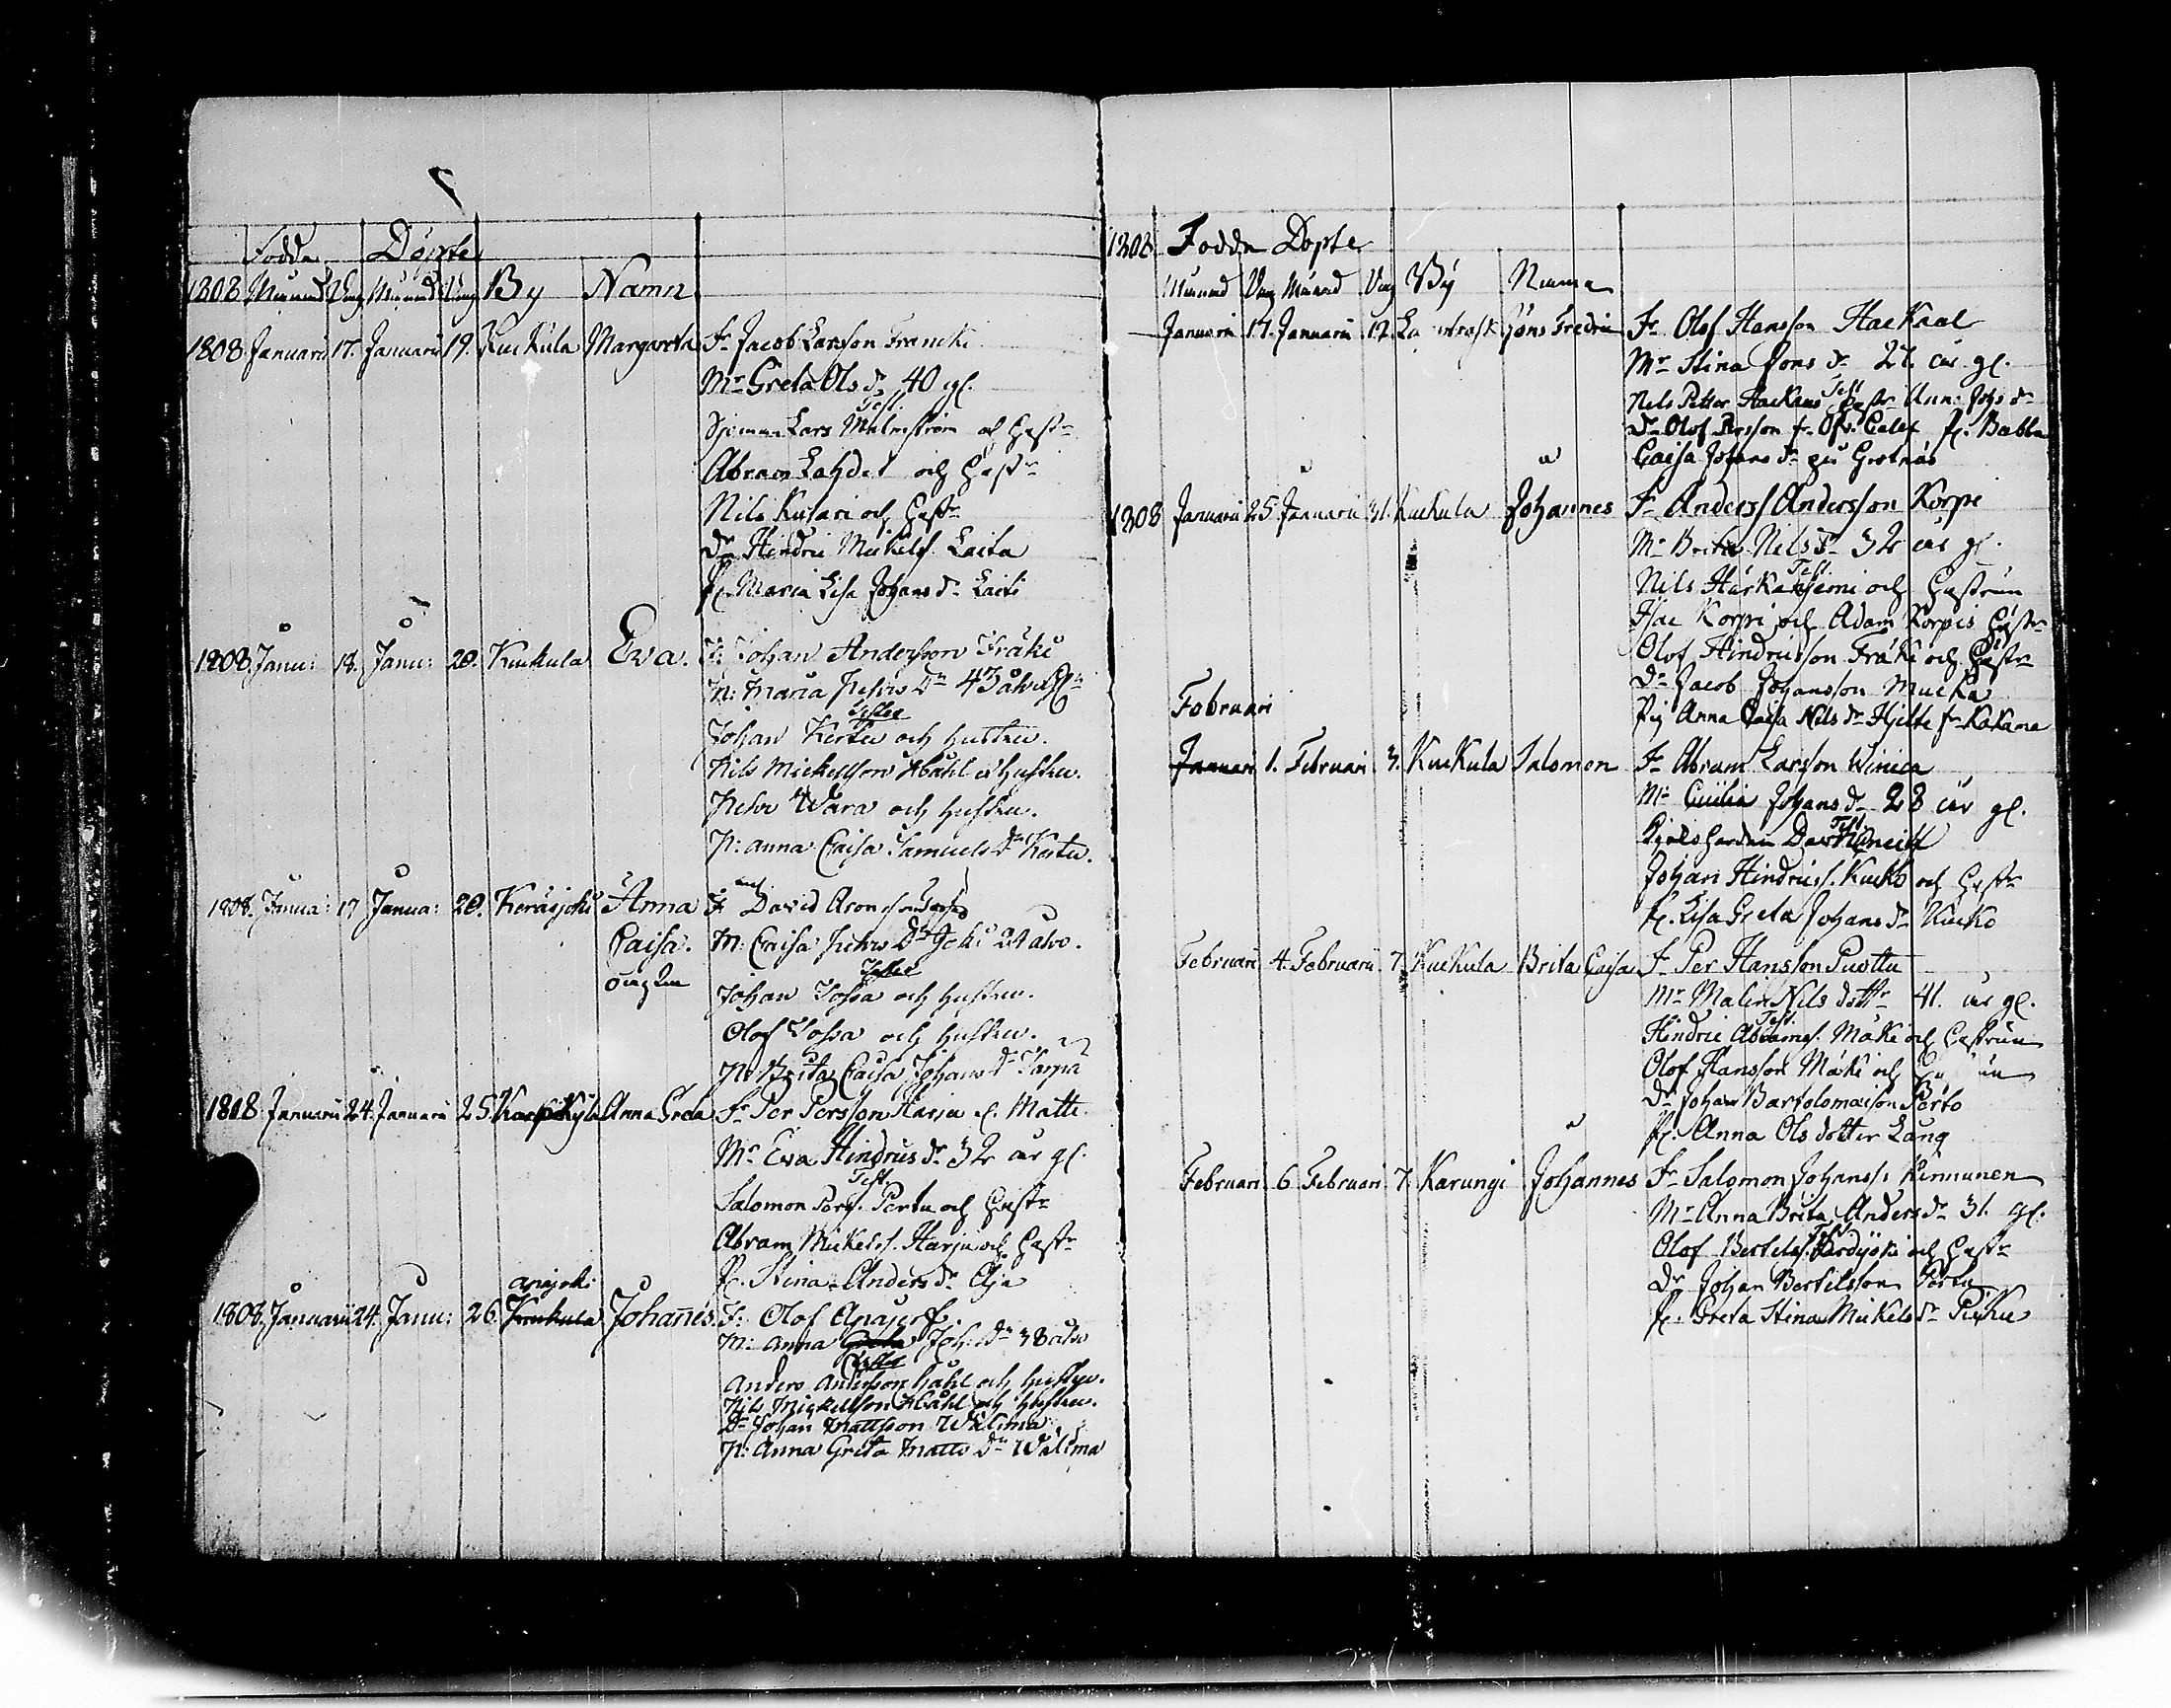 Födde Döpte
1808 Månad Dag Månad Dag By Namn
1808 Januarii 17. Januarii 19. Kuckula Margareta Fr Jacob Larsson Francki
Mr Greta Ols dr 40 gl.
Test.
Lars Malmström och Hustr
Abram Lahdet och Hustr
Nils Kusari och Hustr
Dr Hindric Mickels. Laita
P. Maria Lisa Johans dr Laiti
1808. Janu: 18. Janu: 20. Kuckula Eva. F: Johan Andersson Fräki
M: Maria Dr 43
Testes
Johan Kertu och hustru.
Nils Mickellson Wåhl o hustru.
Wara och hustru.
P: Anna Caisa Samuels Dr Kertu.
1808. Janua: 17 Janua: 20. Keräsjoki Anna F. David Aronsson
Caisa. M: Caisa Dr Joki 24
Testes
Johan Sossa och hustru.
Olof Sossa och hustru.
P. Brita Caisa Johans Dr
1808 Januarii 24. Januarii 25. Karsikkylä Anna Greta Fr Per Persson Harju l. Matti
Mr Eva Hindrics dr 32 år gl.
Test.
Salomon Pers. Pertu och Hustr
Abram Mickels. Harju och Hustr
P. Stina Anders dr Oja
apajoki
1808. Januarii 24. Janu: 26. Kuckula Johannes. F: Olof Apajerf.
M: Anna Greta Joh. Dr 38
Testes
Anders Andersson Håhl och hustru.
Nils Mickellson Wåhl och hustru.
Dr Johan Mattsson Wälima
P: Anna Greta Matts Dr Wälima
1808. Födde Döpte
Månad Dag Månad Dag By Namn
Januarii 17. Januarii 19. Jöns Fredric Fr Olof Hansson Haekael
Mr Stina Jöns dr 27. år gl.
Test
Nils Petter Haekael Hustr Anna Johs dr
Dr Olof Persson fr. Öfr. Calix P. Babba
Caisa Johans dr på Grotnäs
1808 Januarii 25 Januarii 31. Kuckula Johannes Fr Anders Andersson Korpi
Mr Brita Nils dr 32 år gl.
Test.
Nils Harkaniemi och Hustrun
Isac Korpi och Adam Korpis Hustr
Olof Hindricsson Fräki och Hustr
Dr Jacob Johansson Mucka
Pig Anna Caisa Nils dr Hjelte fr. Kakama
Februari
Januari 1. Februari 3. Kuckula Salomon Fr Abram Larsson Winica
Mr Cicilia Johans dr 28 år gl.
Test
Johan Hindrics. Kucko och Hustr
P. Lisa Greta Johans dr Kucko
Februari 4. Februarii 7. Kuckula Brita Caisa Fr Per Hansson Puottu
Mr Malin Nils dottr 41. år gl.
Test.
Hindric Abrams. Mäki och Hustrun
Olof Hansson Mäki och
Dr Johan Bartolomaison Perto
P. Anna Ols dotter Lång
Februari 6 Februari 7. Karungi Johannes Fr Salomon Johans. Kinnunen
Mr Anna Brita Anders dr 31. gl.
Test
Olof Bertels. och Hustr
Dr Johan Bertilsson Pertu
P. Greta Stina Mickels dr Pieku